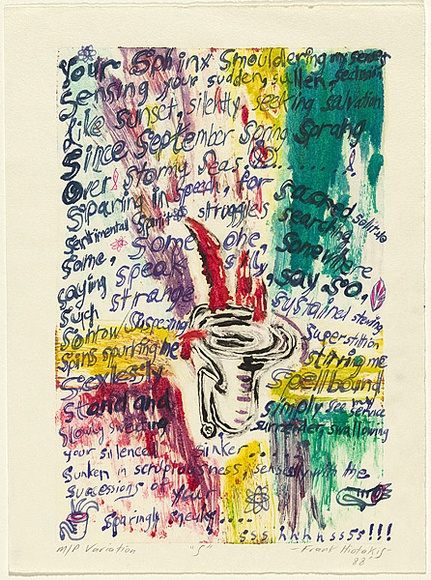 Your Sphinx Smouldering my senses
Sensing your sudden, sullen,
Like sunset, silently, seeking salvation
Since September Spring Sprang
Over stormy seas.
Sparing in speech, for sacred solitude
Sentimental Spirit struggles searching
Some, some one, somewhere
speak say so,
saying
Such strange sustained
Sorrow superstition
Spins spurting me stirring me
Sexlessly Spellbound
Stand and simply see my service
slowly sweating surrender swallowing
your silenced sinker..
Sunken in scrupulousness, with the
successions of your
sparingly
sss hhhhssss!!!
M/P Variation "S" -Frank Hiotakis-
88'